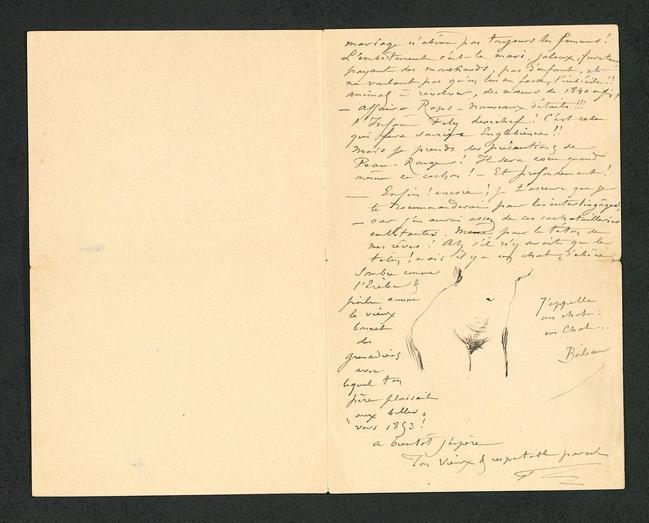 mariage n'abîme pas toujours les femmes!
L'embêtement c'est le mari, jaloux,
payant des mouchards, pas d'enfant, et
ne voulant pas qu'on lui en fasse, l'imbécile!!
animal à révolver, des mœurs de 1840 enfin!
– Affaire Rops – Nouveaux détails!!!
L'Infâme Fély derechef! C'est cela
qui fera sourire Englebienne!!
Mais je prends des précautions de
Peau-Rouge! Il sera cocu quand
même ce cochon! – Et profondément!
– Enfin! encore! je t'assure que je
te recommanderai pour les interlingages!
– car j'en aurai assez de ces
embêtantes. Même pour le téton de
mes rêves! Ah, s'il n'y avait que le
téton! mais il y a un chat, d'ébène
Sombre comme
l'Erèbe &
poilu comme
le vieux
bonnet
de
grenadiers
avec
lequel ton
père plaisait
aux belles,
vers 1853!
J'appelle
un chat:
un Chat...
Boileau
a bientôt j'espère
Ton vieux & respectable parent